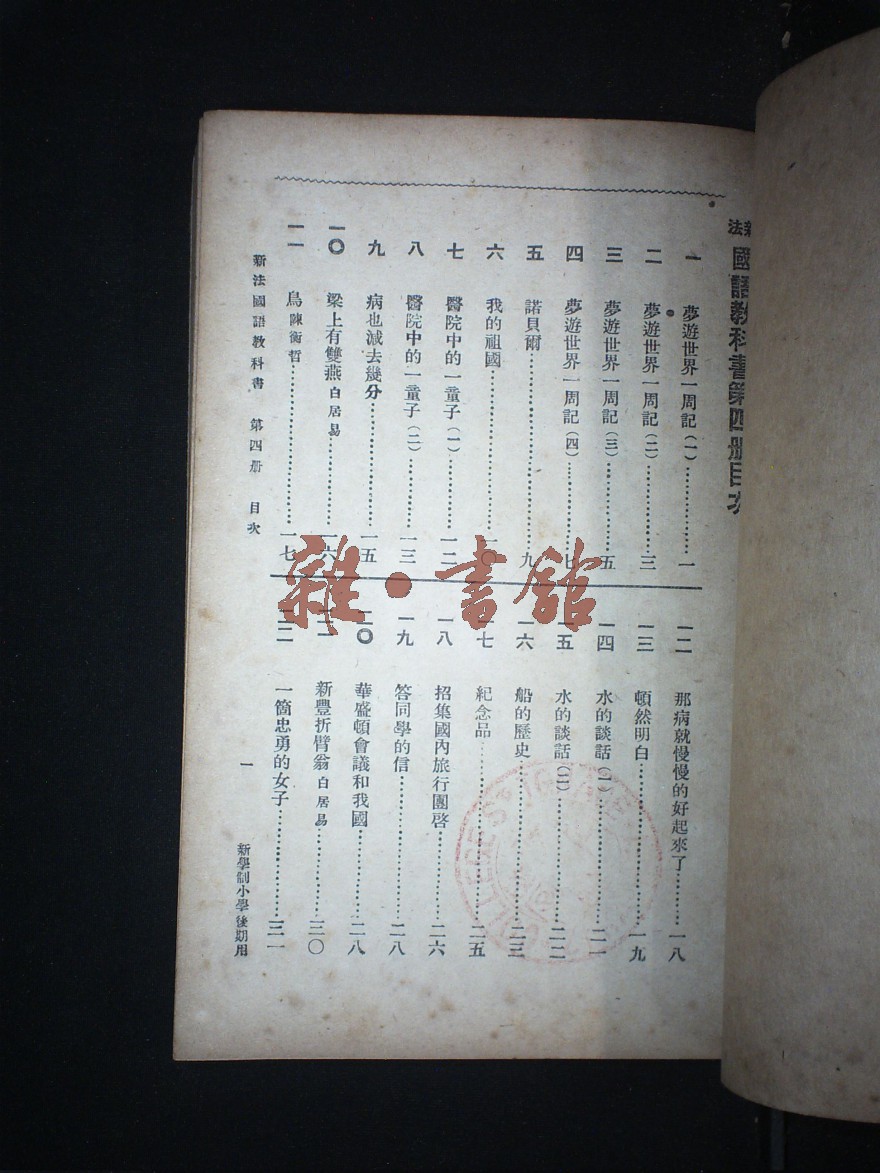 新法
國語教科書第四册目次
一 夢遊世界一周記(一)……一
二 夢遊世界一周記(二)……三
三 夢遊世界一周記(三)……五
四 夢遊世界一周記(四)……七
五 諾貝爾……九
六 我的祖國……一〇
七 醫院中的一童子(一)……一二
八 醫院中的一童子(二)……一三
九 病也減去幾分……一五
一〇 梁上有雙燕 白居易……一六
一一 鳥 陳衡哲……一七
一二 那病就慢慢的好起來了……一八
一三 頓然明白……一九
一四 水的談話(一)……二一
一五 水的談話(二)……二二
一六 船的歷史……二三
一七 紀念品……二五
一八 招集國內旅行團啓……二六
一九 答同學的信……二八
二〇 華盛頓會議和我國……二八
二一 新豐折臂翁 白居易……三〇
二二 一箇忠勇的女子……三一
新法國語教科書 第四册 目次
一
新學制小學後期用
雜·書館